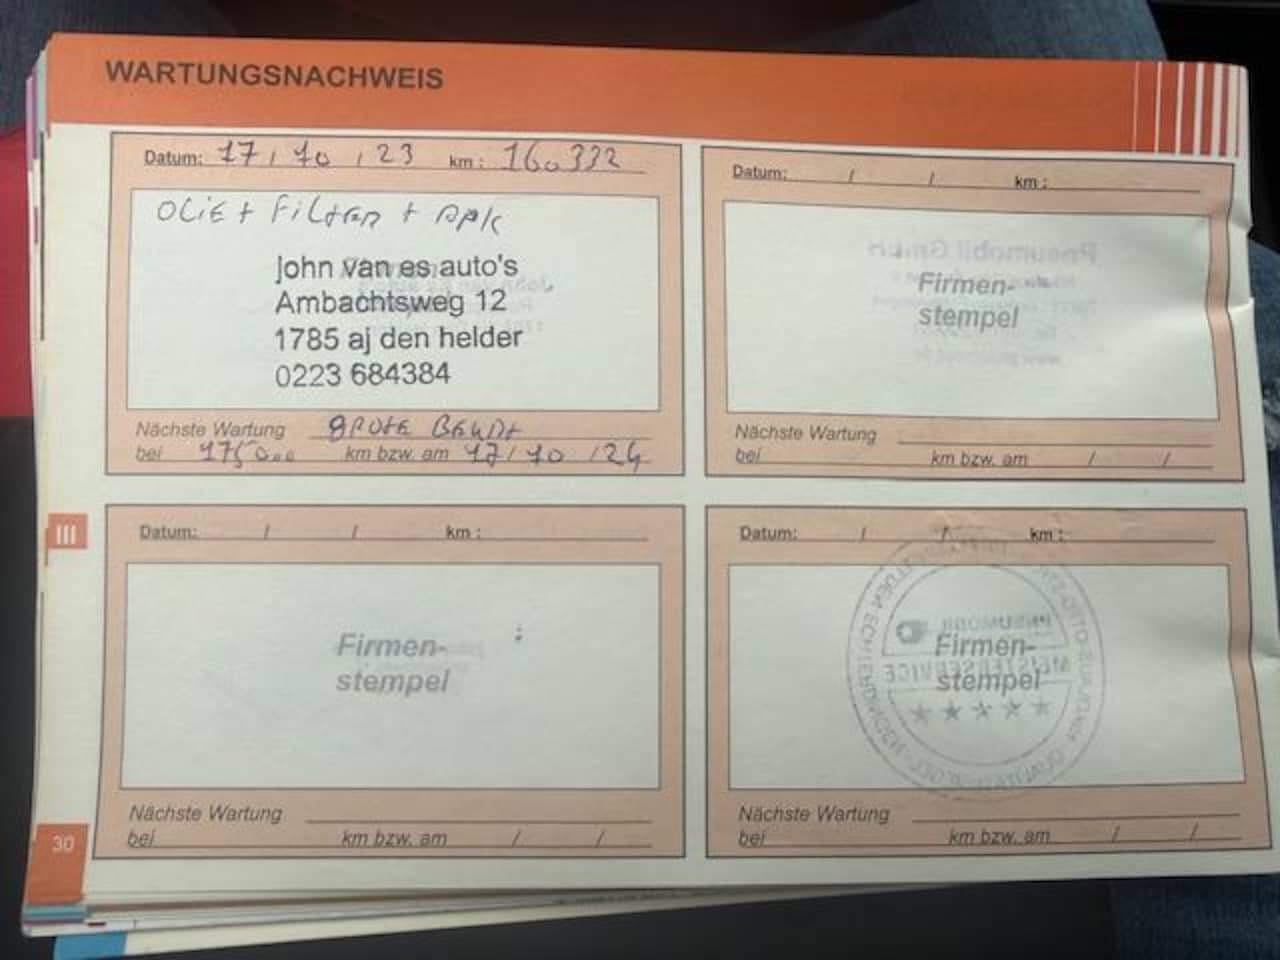 WARTUNGSNACHWEIS
Datum: 17 / 10 / 23 km : 160332
OLiE + Filter + APK
john van es auto's
Ambachtsweg 12
1785 aj den helder
0223 684384
Nächste Wartung GROTE BEURT
bei 175000 km bzw. am 17 / 10 / 24
Datum: / / km :
Pneumobil GmbH
Firmen-
stempel
Nächste Wartung
bei km bzw. am / /
III
Datum: / / km :
Firmen-
stempel
Nächste Wartung
bei km bzw. am / /
Datum: / / km :
PNEUMOBIL
Firmen-
MEISTERSERVICE
stempel
Nächste Wartung
bei km bzw. am / /
30